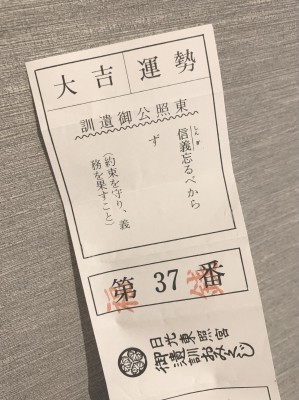 大吉
運勢
東照公御遺訓
しんぎ
信義忘るべから
ず
(約束を守り、義
務を果すこと)
第 37 番
日光東照宮
御遺訓おみくじ